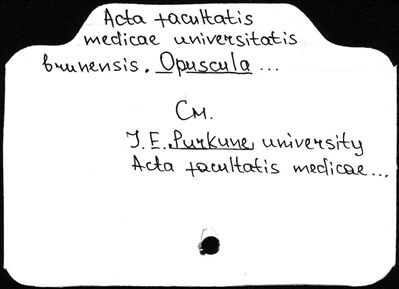 Acta facultatis
medicae universitatis
brunensis. Opuscula ...
См.
J. E. Purkune university
Acta facultatis medicae...